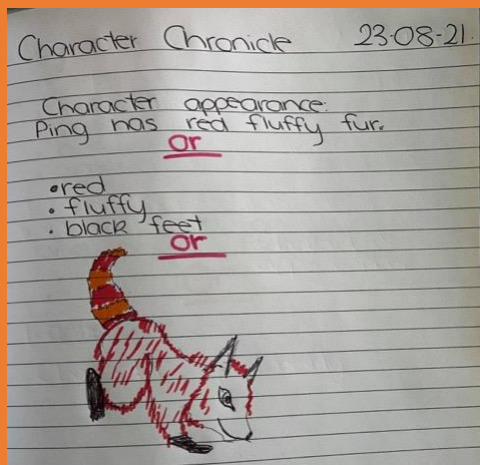 Character Chronicle 23-08-21.
Character appearance:
Ping has red fluffy fur.
or
• red
• fluffy
• black feet
or